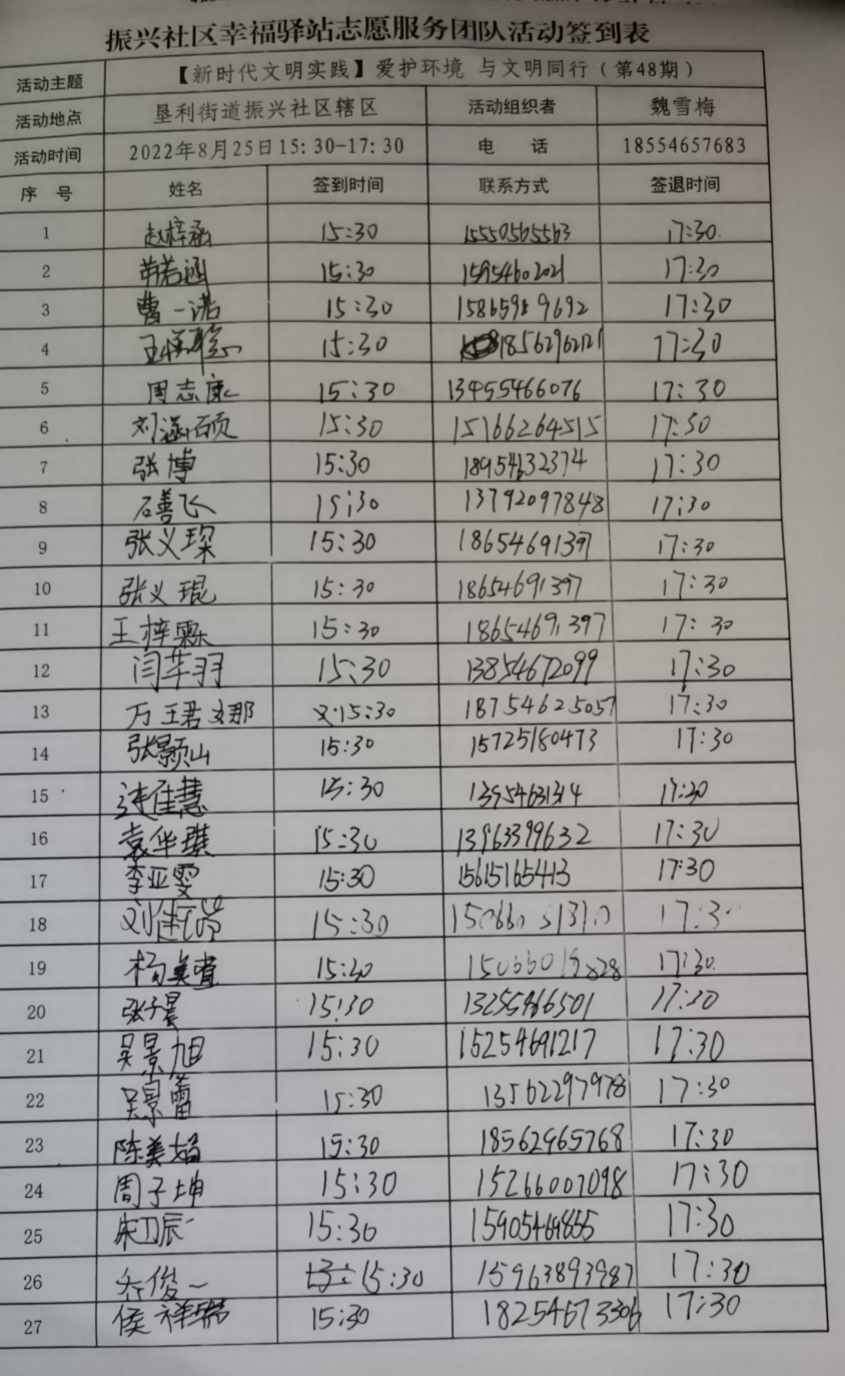 振兴社区幸福驿站志愿服务团队活动签到表
活动主题 【新时代文明实践】爱护环境 与文明同行（第48期）
活动地点 垦利街道振兴社区辖区 活动组织者 魏雪梅
活动时间 2022年8月25日15:30-17:30 电 话 18554657683
序 号 姓名 签到时间 联系方式 签退时间
1 赵梓涵 15:30 15550565563 17:30
2 苟若涵 15:30 15954602021 17:30
3 曹一诺 15:30 15865989692 17:30
4 15:30 18562962121 17:30
5 周志康 15:30 13455466076 17:30
6 刘涵硕 15:30 15166264515 17:30
7 张博 15:30 18954632374 17:30
8 石善飞 15:30 13792097848 17:30
9 张义琛 15:30 18654691397 17:30
10 张义琨 15:30 18654691397 17:30
11 王梓霖 15:30 18654691397 17:30
12 闫芊羽 15:30 13854672099 17:30
13 万王君 那 15:30 18754625057 17:30
14 张颢山 15:30 15725180473 17:30
15 连佳慧 15:30 17:30
16 袁华琪 15:30 13963399632 17:30
17 李亚雯 15:30 15615165413 17:30
18 刘 15:30 17:3
19 杨美萱 15:30 15066019828 17:30
20 张子晨 15:30 13255966501 17:30
21 吴景旭 15:30 15254691217 17:30
22 吴景蕾 15:30 13562297978 17:30
23 陈美焰 15:30 18562965768 17:30
24 周子坤 15:30 15266007098 17:30
25 宋卫辰 15:30 15905469855 17:30
26 乔俊一 15:30 15963893987 17:30
27 侯祥瑞 15:30 18254673306 17:30